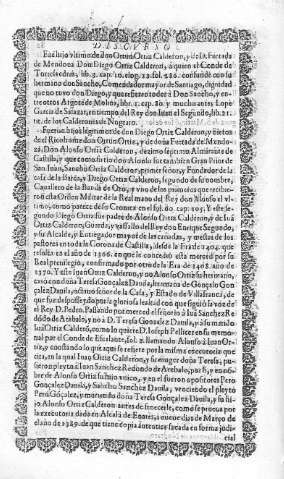 DISCVRSO
Fue hijo vltimo de don Ortun Ortiz Calderon, y de D. Furtada
de Mendoza Don Diego Ortiz Calderon, a quien el Conde de
lib. 3. cap. 10. elog. 22. fol. 280. confunde con su
hermano don Sancho, Comendador mayor de Santiago, dignidad
que tuvo don Diego, y que este heredò de don Sancho, y en-
tre otros Argote de Molina, lib. 1. cap. 80. y mucho antes Lope
Garcia de Salazar, en tiempo del Rey don Iuan el Segundo, lib. 21.
tit. de los Calderones de Nograro.
Fueron hijos legitimos de don Diego Ortiz Calderon, y nietos
de el Rico hombre don Ortun Ortiz, y de doña Furtada de Mendo-
za, Don Alonso Ortiz Calderon, dezimo septimo Almirante de
Castilla, y que como su tio don Alonso fue tambien Gran Prior de
San Iuan, Sancho Ortiz Calderon, primer señor, y Fundador de la
casa de la Bania, y Diego Ortiz Calderon, segundo de su nombre,
Cavallero de la Banda de Oro, y vno de los primeros que recibie-
ron esta Orden Militar de la Real mano del Rey don Alonso el vl-
timo, como parece de su Cronica en el fol. 80. cap. 103. Y este se-
gundo Diego Ortiz fue padre de Alonso Ortiz Calderon, y de Iuã
Ortiz Calderon, Guarda, y vassallo del Rey don Enrique Segundo,
y su Alcalde, y Entregador mayor de las cañadas, y mestas de los
pastores en toda la Corona de Castilla, desde la Era de 1404. que
resulta en el año de 1366. en que le concediò esta merced por su
Real privilegio, confirmado por otro de la Era de 1408. año de
1370. Y este Iuan Ortiz Calderon, y no Alonso Ortiz su hermano,
casò con doña Teresa Gonçalez Davila, hermana de Gonçalo Gon-
çalez Davila, octavo señor de la Casa, y Estado de Villafranca, de
que fue desposseìdo por la gloriosa lealtad con que siguiò la voz de
el Rey D. Pedro, Passando por merced el señorio à Iuã Sanchez Re-
dõdo de Arebalo, y no à D. Teresa Gonçalez Davila, y a su marido
Iuã Ortiz Calderõ, como lo quiere D. Ioseph Pellicer en su memo-
rial por el Conde de Escalante, fol. llamando Alonso à Iuan Or-
tiz, y constando lo que aqui se refiere por la misma executoria que
cita, en la qual Iuan Ortiz Calderon, y su muger doña Teresa, pu-
sieron pleyto à Iuan Sanchez Redondo de Arebalo, pues, y en nõ-
bre de Alonso Ortiz su hijo vnico, y en èl fueron opositores Pero
Gonçalez Davila, y Sancho Sanchez Davila; venciendo el pleyto
Pero Gõçalez, y muriendo doña Teresa Gonçalez Davila, y su hi-
jo Alonso Ortiz Calderon antes de vencerle, como se prueva por
la executoria dada en Alcalà de Enares, à nueve dias de Março de
el año de 1389. de que tiene copia autentica sacada en forma judi-
cial